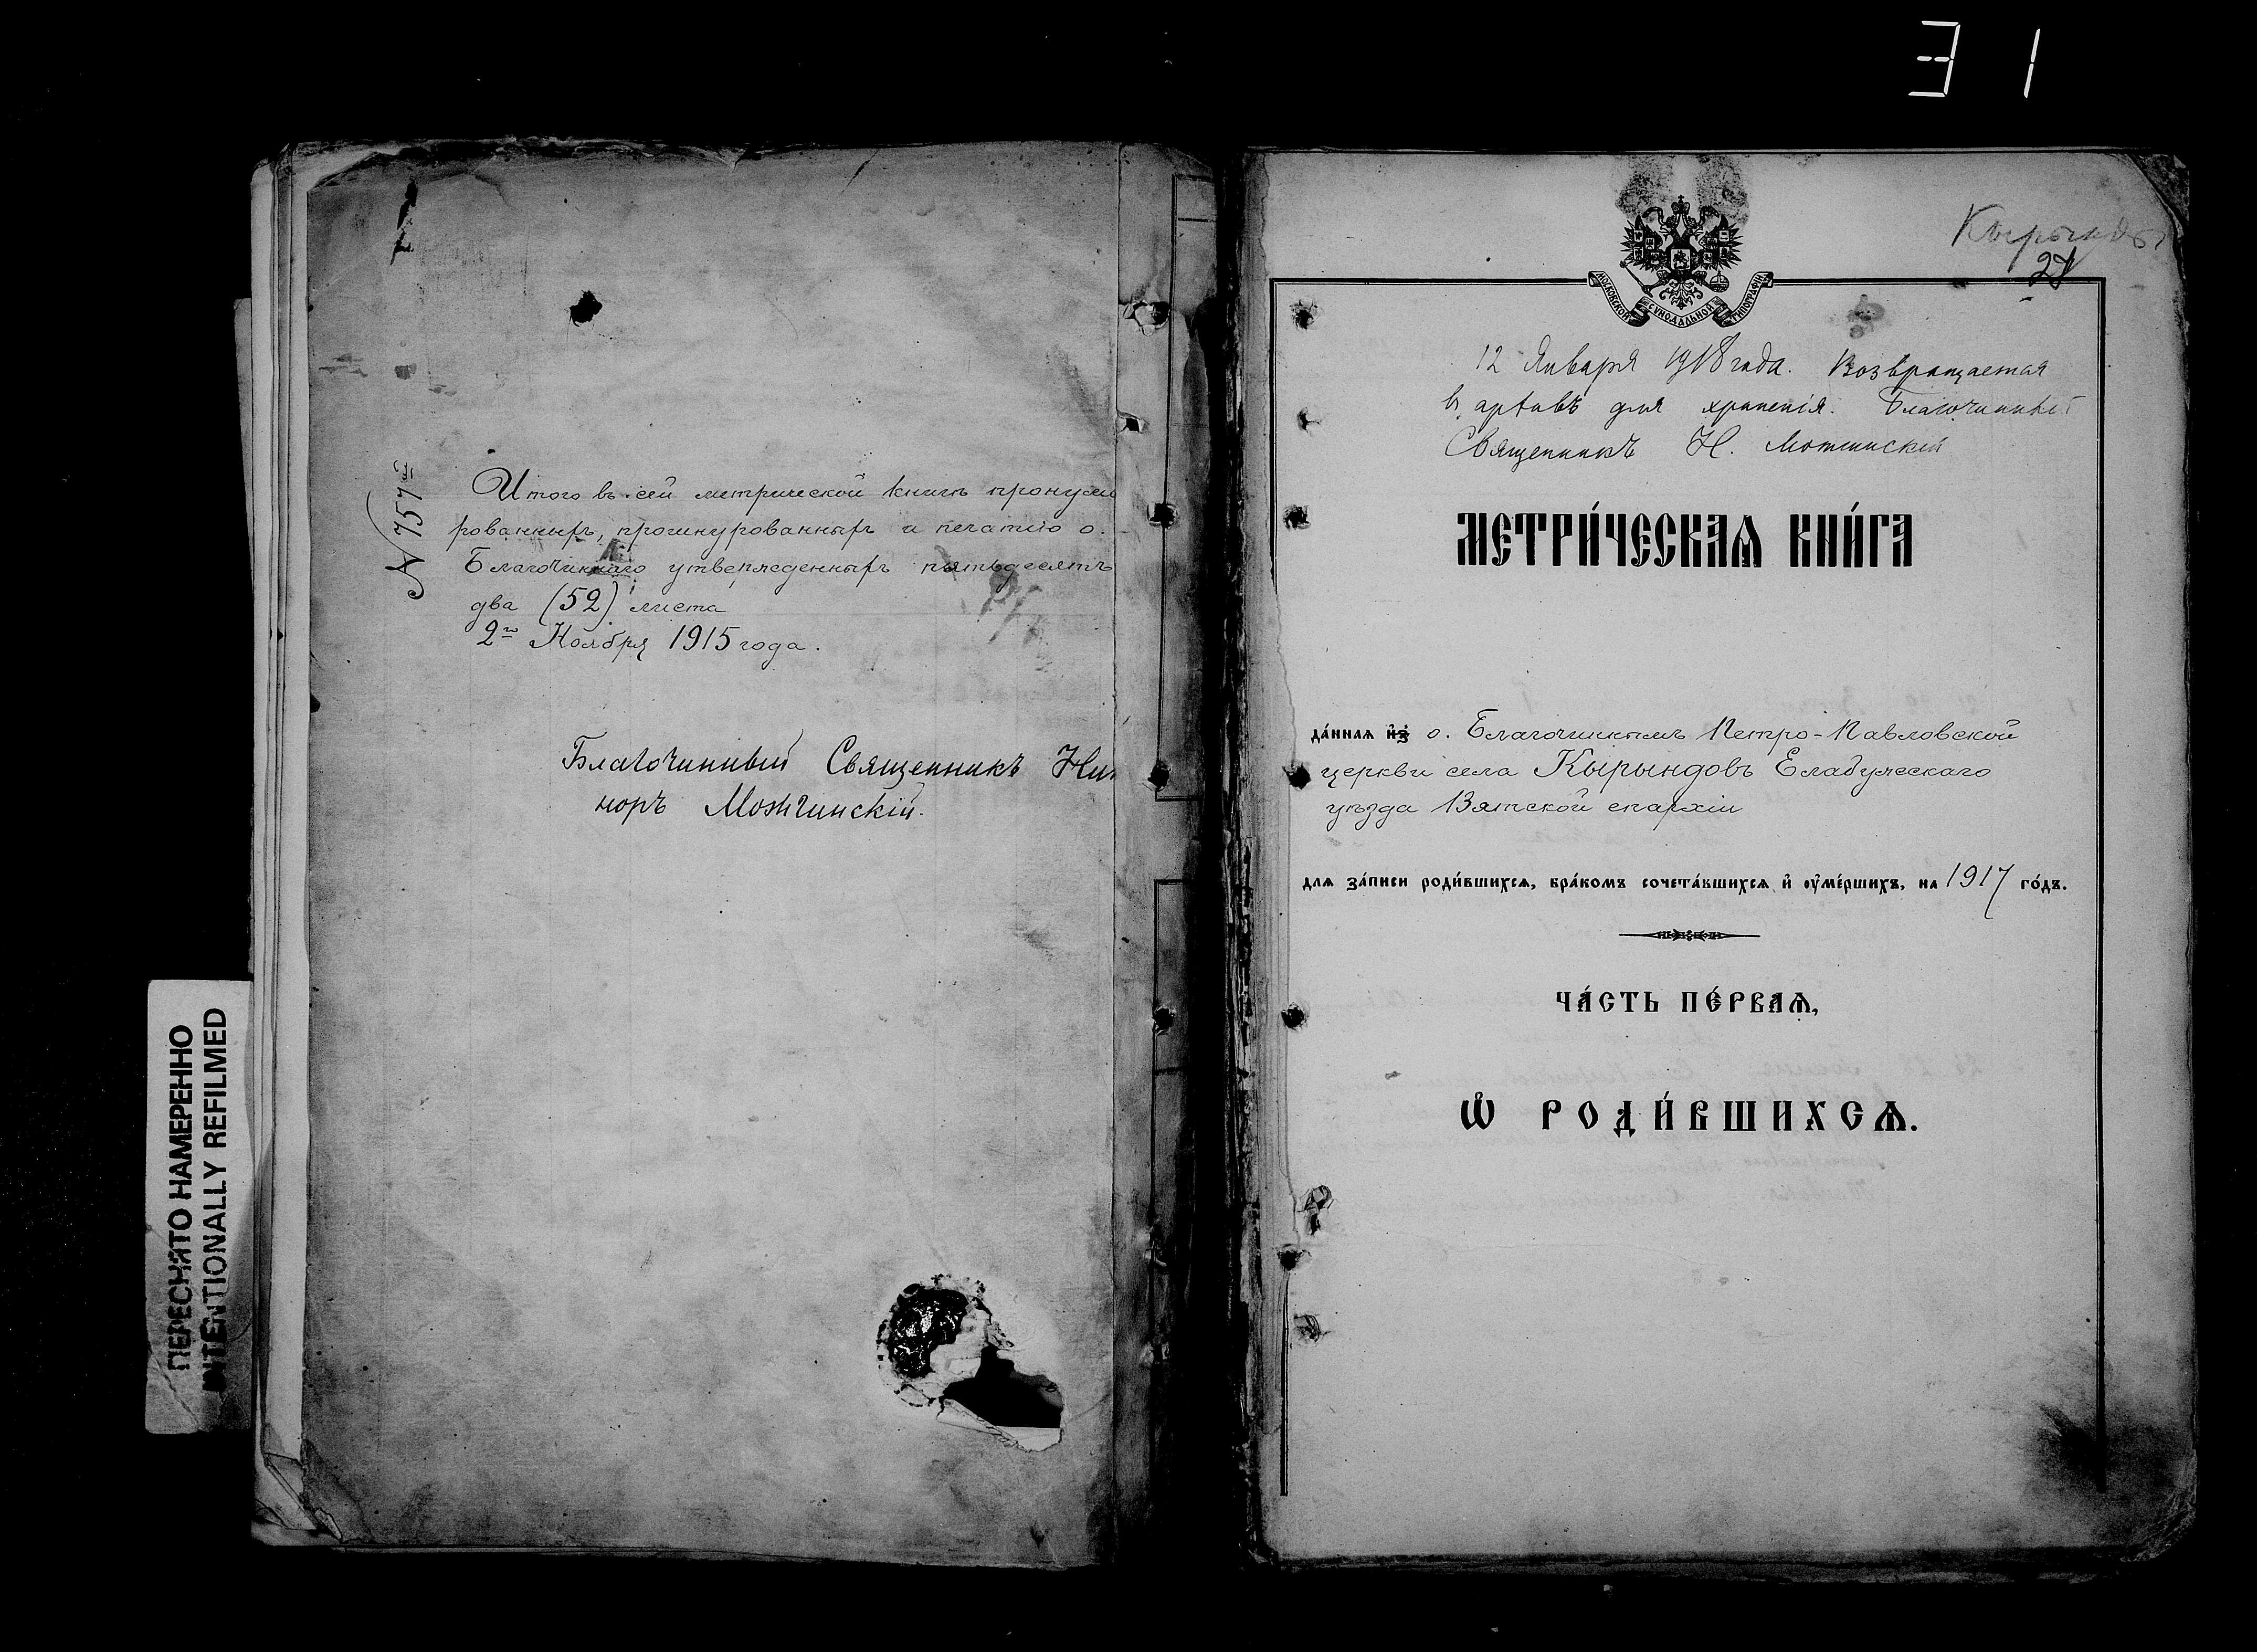 31
№ 757й
Итого въ сей метрической книгѣ прону
рованныхъ, прошнурованныхъ и печатію о.
Благочиннаго утвержденныхъ пятьдесятъ
два (52) листа
2го Ноября 1915 года.
Благочинный Священникъ Ни
норъ Можгинскій.
ПЕРЕСНЯТО НАМЕРЕННО
INTENTIONALLY REFILMED
Кырынды
МОСКОВСКОЙ СѴНОДАЛЬНОЙ ТИПОГРАФІИ
12 Января 1918 года. Возвращается
въ архивъ для храненія. Благочинный
Священникъ Н. Можгинскій
МЕТРИ́ЧЕСКАѦ КНИ́ГА
да́ннаѧ и҆з̾ о. Благочиннымъ Петро-Павловской
церкви села Кырындовъ Елабужскаго
уѣзда Вятской епархіи
длѧ за́писи роди́вшихсѧ, бра́комъ сочета́вшихсѧ и҆ ᲂу҆ме́ршихъ, на 1917 го́дъ.
ЧА́СТЬ ПЕ́РВАѦ,
Ѽ РОДИ́ВШИХСѦ.